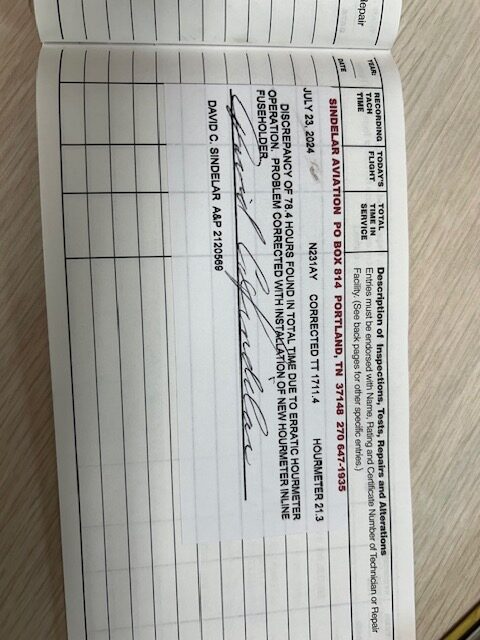 epair
YEAR:
DATE
RECORDING
TACH
TIME
TODAY'S
FLIGHT
TOTAL
TIME IN
SERVICE
Description of Inspections, Tests, Repairs and Alterations
Entries must be endorsed with Name, Rating and Certificate Number of Technician or Repair
Facility. (See back pages for other specific entries.)
SINDELAR AVIATION PO BOX 814 PORTLAND, TN 37148 270 647-1935
JULY 23, 2024 N231AY CORRECTED TT 1711.4 HOURMETER 21.3
DISCREPANCY OF 78.4 HOURS FOUND IN TOTAL TIME DUE TO ERRATIC HOURMETER
OPERATION. PROBLEM CORRECTED WITH INSTALLATION OF NEW HOURMETER INLINE
FUSEHOLDER.
DAVID C. SINDELAR A&P 2120569